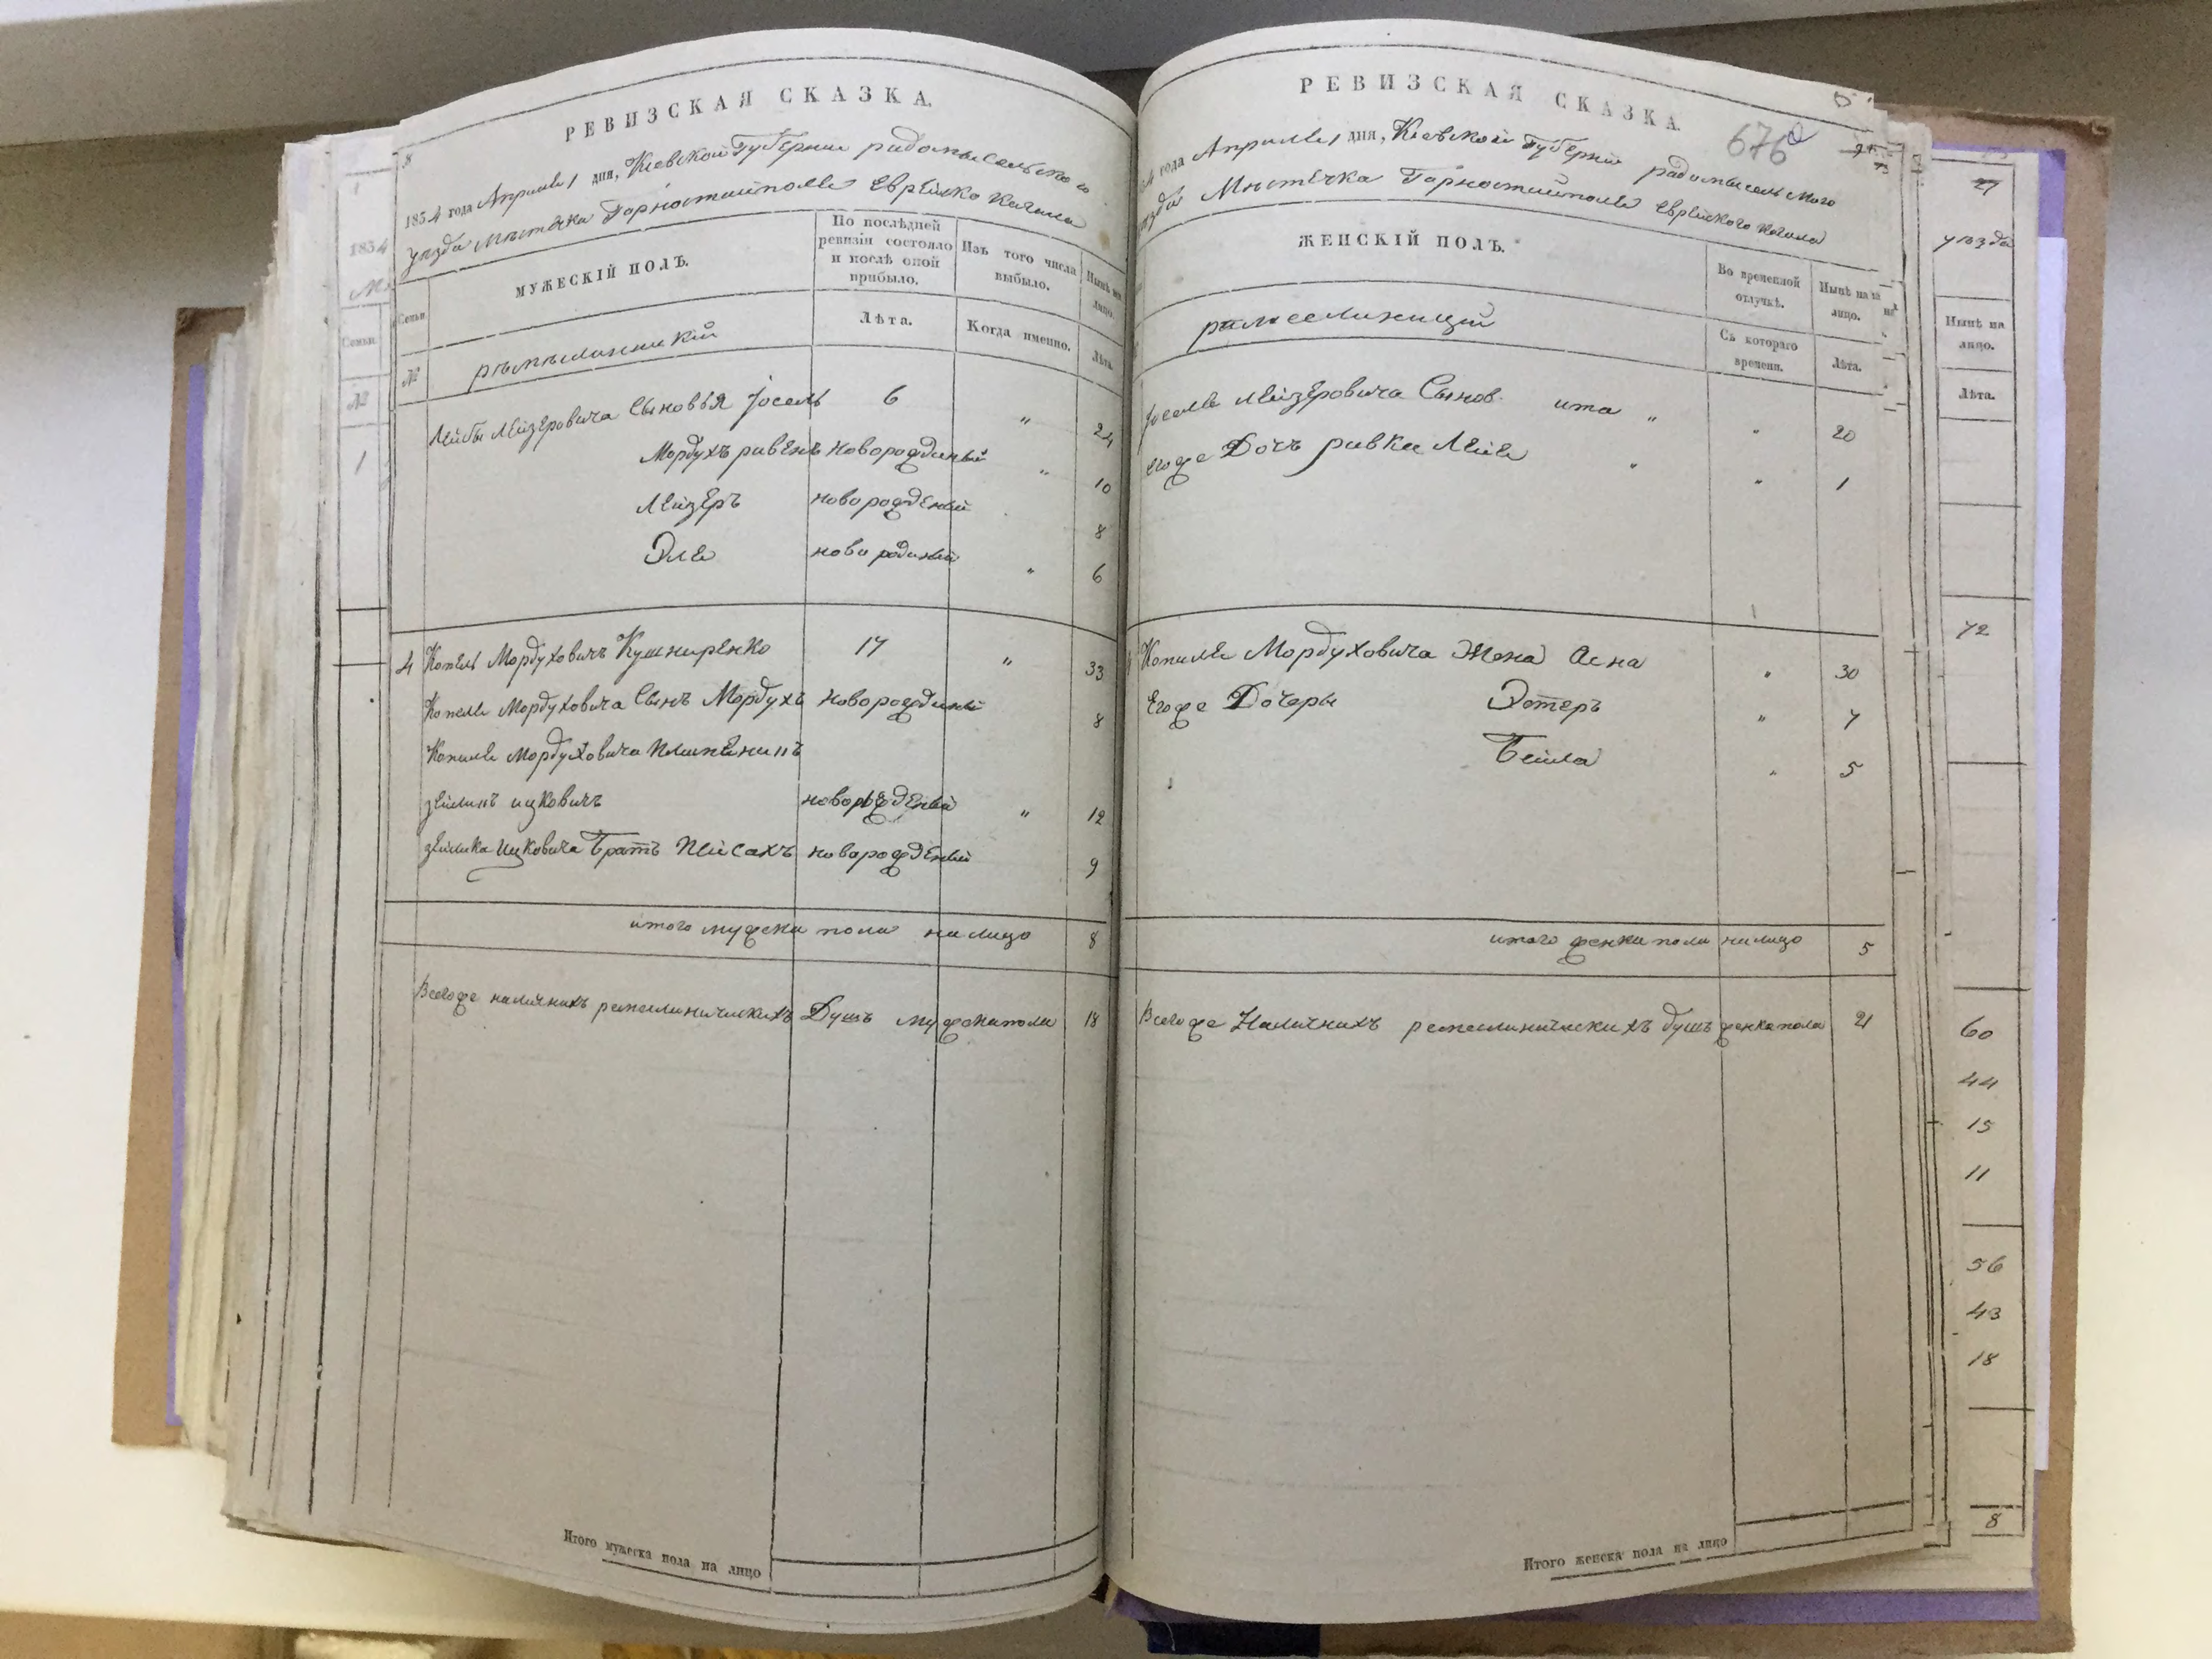 РЕВИЗСКАЯ СКАЗКА.
8
1834 года Апрыля 1 дня, Кіевской Губерніи радомысльского
уѣзда Мѣстечка Горностайполя Еврейско Кагала
Семьи.
МУЖЕСКІЙ ПОЛЪ.
По послѣдней ревизіи состояло и послѣ оной прибыло.
Изъ того числа выбыло.
Нынѣ на лицо.
№
Лѣта.
Когда именно.
Лѣта.
Лейбы Лейзеровича Сыновья Іосель 6 " 24
Мордухъ новорожденый " 10
Лейзеръ новорожденый 8
Эле новорожденый " 6
4 Копель Мордуховичъ Кушниренко 17 " 33
Копеля Мордуховича Сынъ Мордухъ новорожденый 8
Копеля Мордуховича Племенникъ
ицковичъ новорожденый " 12
Ицковича Братъ Пейсахъ новорожденый 9
итого мужска пола на лицо 8
Всегоже наличныхъ Душъ мужска пола 18
Итого мужеска пола на лицо
РЕВИЗСКАЯ СКАЗКА.
676
года Апрыля 1 дня, Кіевской Губерніи радомысльского
уѣзда Мѣстечка Горностайполя Еврейского Кагала
ЖЕНСКІЙ ПОЛЪ.
Во временной отлучкѣ.
Нынѣ на лицо.
Съ котораго времени.
Лѣта.
Іоселя Лейзеровича ита " " 20
Егоже Дочъ ривка Лея " " 1
Копеля Мордуховича Жена Асна " 30
Егоже Дочеры Эстеръ " 7
Бейла " 5
итого женска пола на лицо 5
Всегоже Наличныхъ душъ женска пола 21
Итого женска пола на лицо
1834
Семьи.
№
1
27
уѣзда
Нынѣ на лицо.
Лѣта.
72
60
44
15
11
56
43
18
8